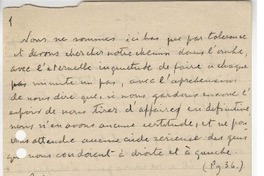 1
Nous ne sommes ici bas que par tolerance
et devons chercher notre chemin dans l'ombre,
avec l'eternelle inquietude de faire a chaque
minute un pas, avec l'apprehension
de nous dire que, si nous gardons encore l'
espoir de nous tirer d'affaires, en definitive
nous n'en avons aucune certitude, et ne pou
vons attendre aucune aide serieuse des gens
qui nous coudoient à droite et à gauche
(Pg 36.)